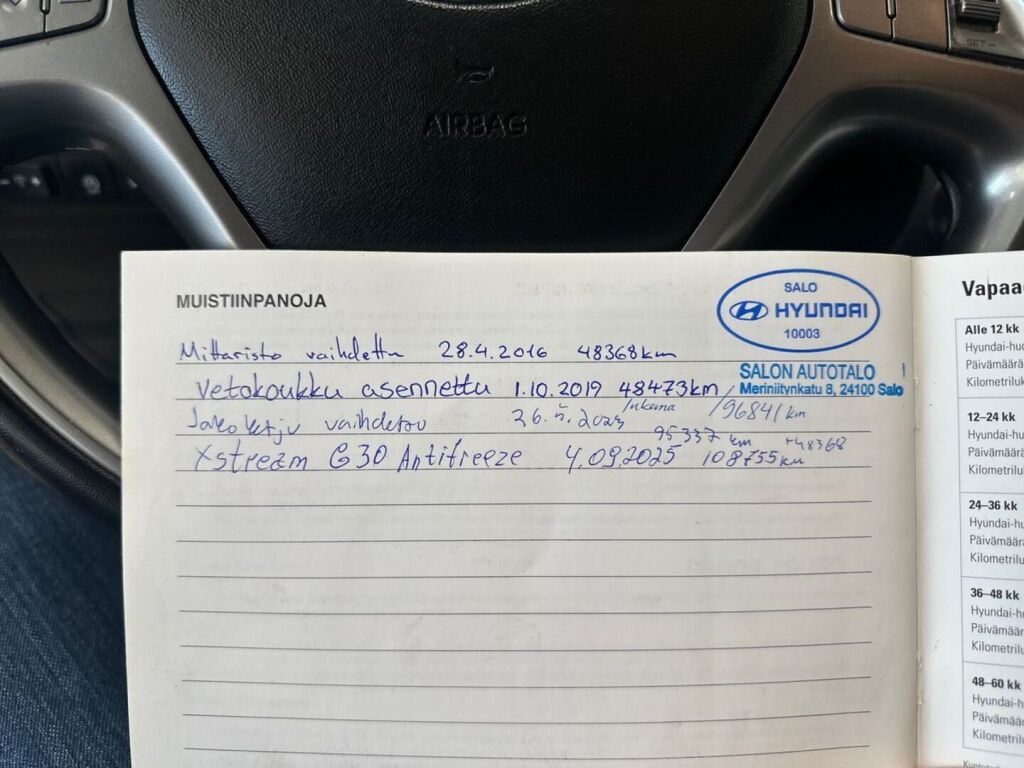 AIRBAG
SET -
MUISTIINPANOJA
SALO
HYUNDAI
10003
Mittaristo vaihdettu 28.4.2016 48368km
SALON AUTOTALO
Meriniitynkatu 8, 24100 Salo
Vetokoukku asennettu 1.10.2019 48473km / 96841 km
Jakoketju vaihdettu 26.5.2023 lukema 95337 km +48368
Xstream G30 Antifreeze 4.09.2025 108755km
Vapaa
Alle 12 kk
Hyundai-hu
Päivämäärä
Kilometriluk
12–24 kk
Hyundai-hu
Päivämäärä
Kilometrilu
24–36 kk
Hyundai-hu
Päivämäärä
Kilometrilu
36–48 kk
Hyundai-hu
Päivämäär
Kilometrilu
48–60 kk
Hyundai-h
Päivämää
Kilometril